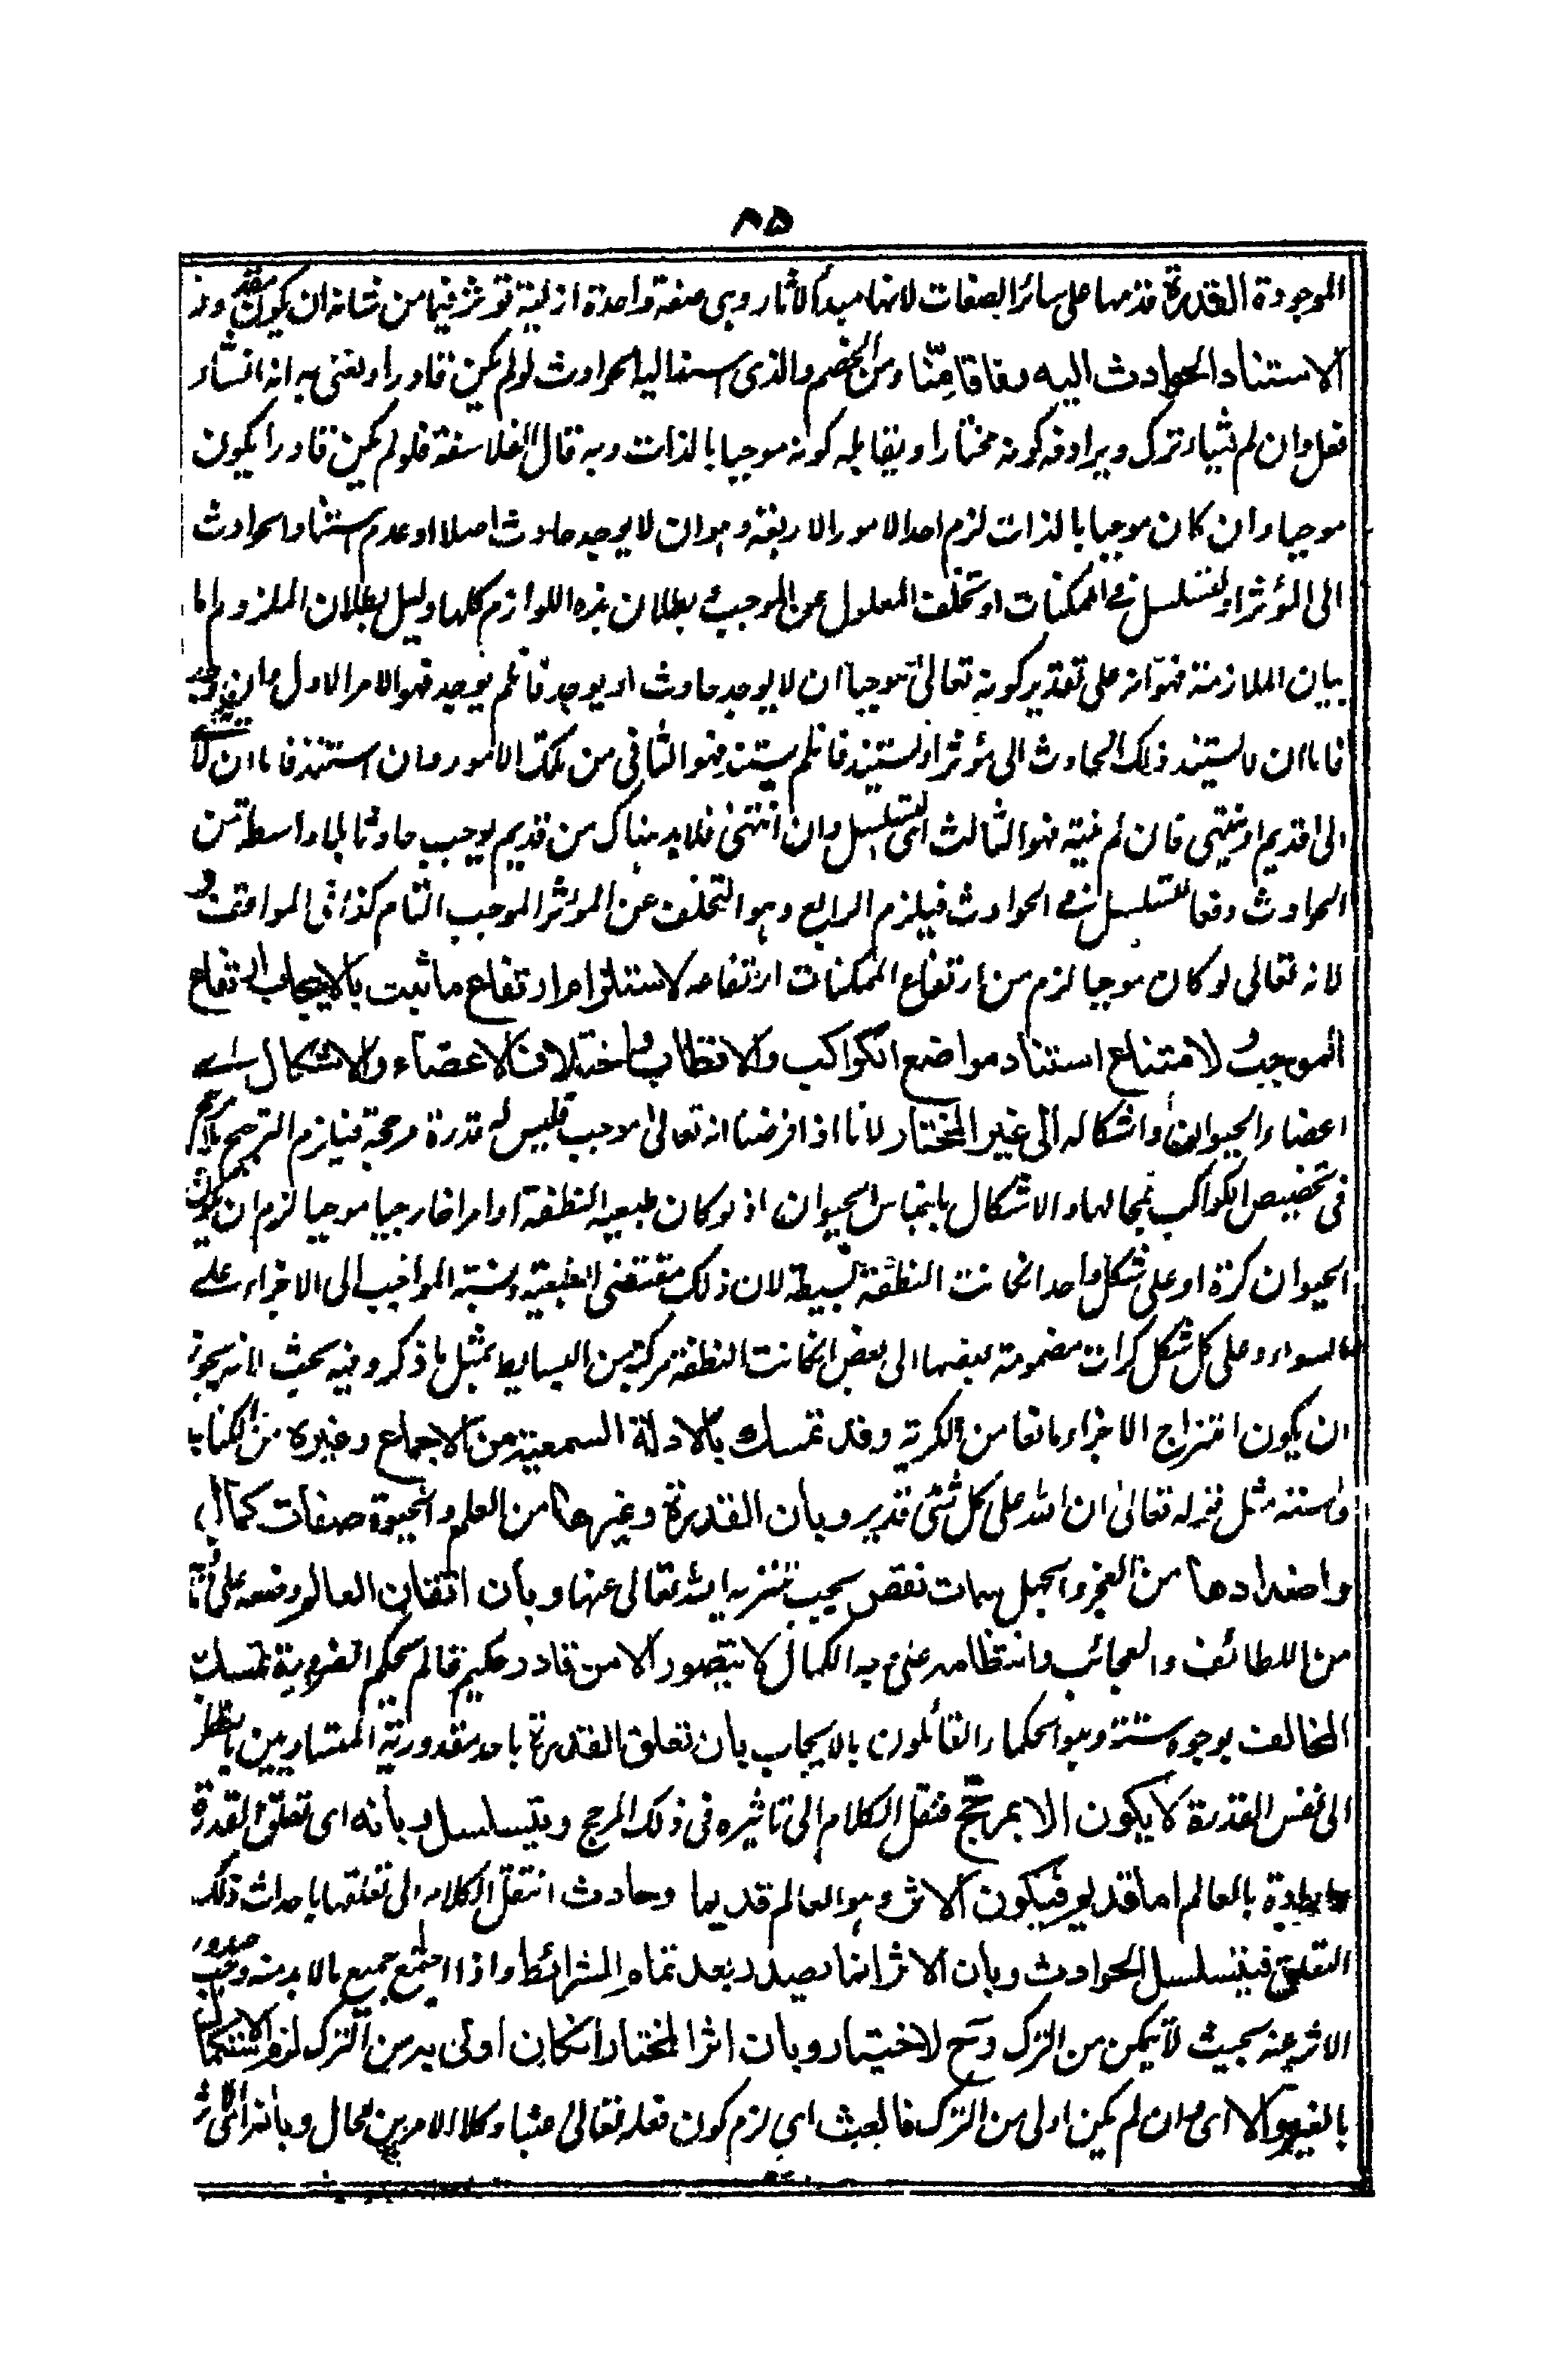 ٨٥
الموجودة القدرة قدمها على سائر الصفات لانها مبدأ الاثار وهى صفة واحدة ازلية تؤثر فيما من شانه ان يكون مقدورا
لاستناد الحوادث اليه وفاقا منّا ومن الخصم والذى استند اليه الحوادث لو لم يكن قادرا ونعنى به انه ان شاء
فعل وان لم يشاء ترك ويرادفه كونه مختارا ويقابله كونه موجبا بالذات وبه قال الفلاسفة فلو لم يكن قادرا يكون
موجبا وان كان موجبا بالذات لزم احد الامور الاربعة وهو ان لا يوجد حادث اصلا او عدم استناد الحوادث
الى المؤثر او تسلسل فى الممكنات او تخلف المعلول عن الموجب وبطلان هذه اللوازم كلها دليل بطلان الملزوم اما
بيان الملازمة فهو انه على تقدير كونه تعالى موجبا ان لا يوجد حادث او يوجد فان لم يوجد فهو الامر الاول وان وجد
فاما ان لا يستند ذلك الحادث الى مؤثر او يستند فان لم يستند فهو الثانى من تلك الامور وان استند فاما ان لا ينتهى
الى قديم او ينتهى فان لم ينته فهو الثالث اى التسلسل وان انتهى فلا بد هناك من قديم يوجب حادثا بلا واسطة من
الحوادث دفعا للتسلسل فى الحوادث فيلزم الرابع وهو التخلف عن المؤثر الموجب التام كذا فى المواقف و
لانه تعالى لو كان موجبا لزم من ارتفاع الممكنات ارتفاعه لاستلزام ارتفاع ما ثبت بالايجاب ارتفاع
الموجب ولامتناع استناد مواضع الكواكب والاقطاب واختلاف الاعضاء والاشكال اے
اعضاء الحيوان واشكاله الى غير المختار لانا اذا فرضنا انه تعالى موجب فليس له قدرة مرجحة فيلزم الترجيح بلا مرجح
فى تخصيص الكواكب بمحالها والاشكال باجناس الحيوان اذ لو كان طبيعية النطفة او امرا خارجيا موجبا لزم ان يكون
الحيوان كرة او على شكل واحد انكانت النطفة بسيطة لان ذلك مقتضى الطبيعة ونسبة المواجب الى الاجزاء على
السواء وعلى كل شكل كرات مضمومة بعضها الى بعض انكانت النطفة مركبة من البسايط بمثل ما ذكر وفيه بحث لانه يجوز
ان يكون امتزاج الاجزاء مانعا من الكرية وقد تمسك بالادلة السمعية من الاجماع وغيره من الكتاب
والسنة مثل قوله تعالى ان الله على كل شئ قدير وبان القدرة وغيرها من العلم والحيوة صفات كمال
واضدادها من العجز والجهل سمات نقص يجب تنزيه الله تعالى عنها وبان اتقان العالم وصنعه على
من اللطائف والعجائب وانتظامه على وجه الكمال لا يتصور الا من قادر حكيم عالم بحكم الضرورية تمسك
المخالف بوجوه ستة وهو الحكماء القائلون بالايجاب بان تعلق القدرة باحد مقدورية المتساويين بالنظر
الى نفس القدرة لا يكون الا بمرجح فننقل الكلام الى تاثيره فى ذلك المرجح ويتسلسل وبانه اى تعلق القدرة
بالعالم اما قديم فيكون الاثر وهو العالم قديما وحادث انتقل الكلام الى تعلقها باحداث ذلك
التعلق فيتسلسل الحوادث وبان الاثر انما يصدر بعد تمام الشرائط واذا اجتمع جميع ما لا بد منه وجب صدور
الاثر عنه بحيث لا يمكن من الترك وح لا اختيار وبان اثر المختار انكان اولى به من الترك لزم الاستكمال
بالغير والا اى وان لم يكن اولى من الترك فالعبث اى لزم كون فعله تعالى عبثا وكلا الامرين محال وبانه